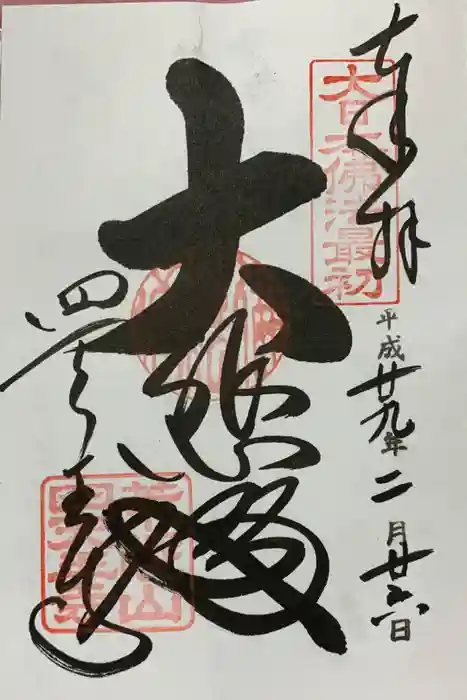 奉拝
大日本佛法最初
平成廿九年二月廿六日
大悲殿
四天王寺
荒陵山